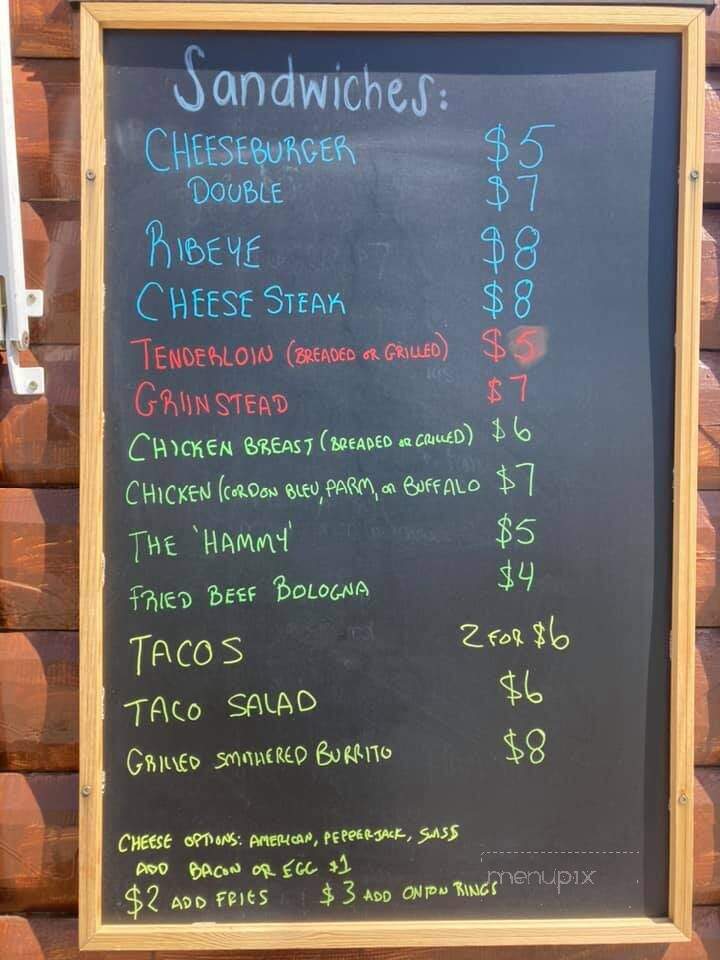 Sandwiches:
CHEESEBURGER $5
DOUBLE $7
RIBEYE $8
CHEESE STEAK $8
TENDERLOIN (BREADED OR GRILLED) $5
GRIINSTEAD $7
CHICKEN BREAST (BREADED OR GRILLED) $6
CHICKEN (CORDON BLEU, PARM, OR BUFFALO $7
THE 'HAMMY' $5
FRIED BEEF BOLOGNA $4
TACOS 2 FOR $6
TACO SALAD $6
GRILLED SMOTHERED BURRITO $8
CHEESE OPTIONS: AMERICAN, PEPPERJACK, SWISS
ADD BACON OR EGG $1
$2 ADD FRIES $3 ADD ONION RINGS
menupix